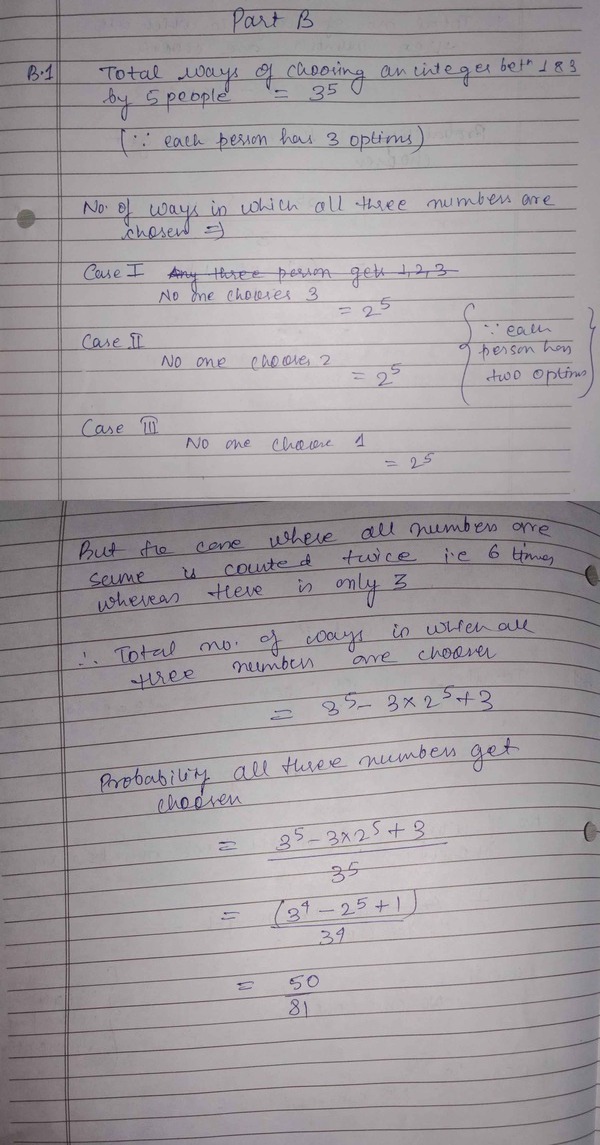 Part B
B.1 Total ways of choosing an integer betn 1 & 3
by 5 people = 3⁵
(∵ each person has 3 options)
No. of ways in which all three numbers are
chosen ⇒
Case I Any three person gets 1, 2, 3
No one chooses 3
= 2⁵
Case II
No one chooses 2
= 2⁵
{∵ each
person has
two options}
Case III
No one choose 1
= 2⁵
But the case where all numbers are
same is counted twice i.e 6 times
whereas there is only 3
∴ Total no. of ways in which all
three numbers are choosen
= 3⁵ - 3×2⁵ + 3
Probability all three numbers get
choosen
= 3⁵ - 3×2⁵ + 3
3⁵
= (3⁴ - 2⁵ + 1)
3⁴
= 50
81